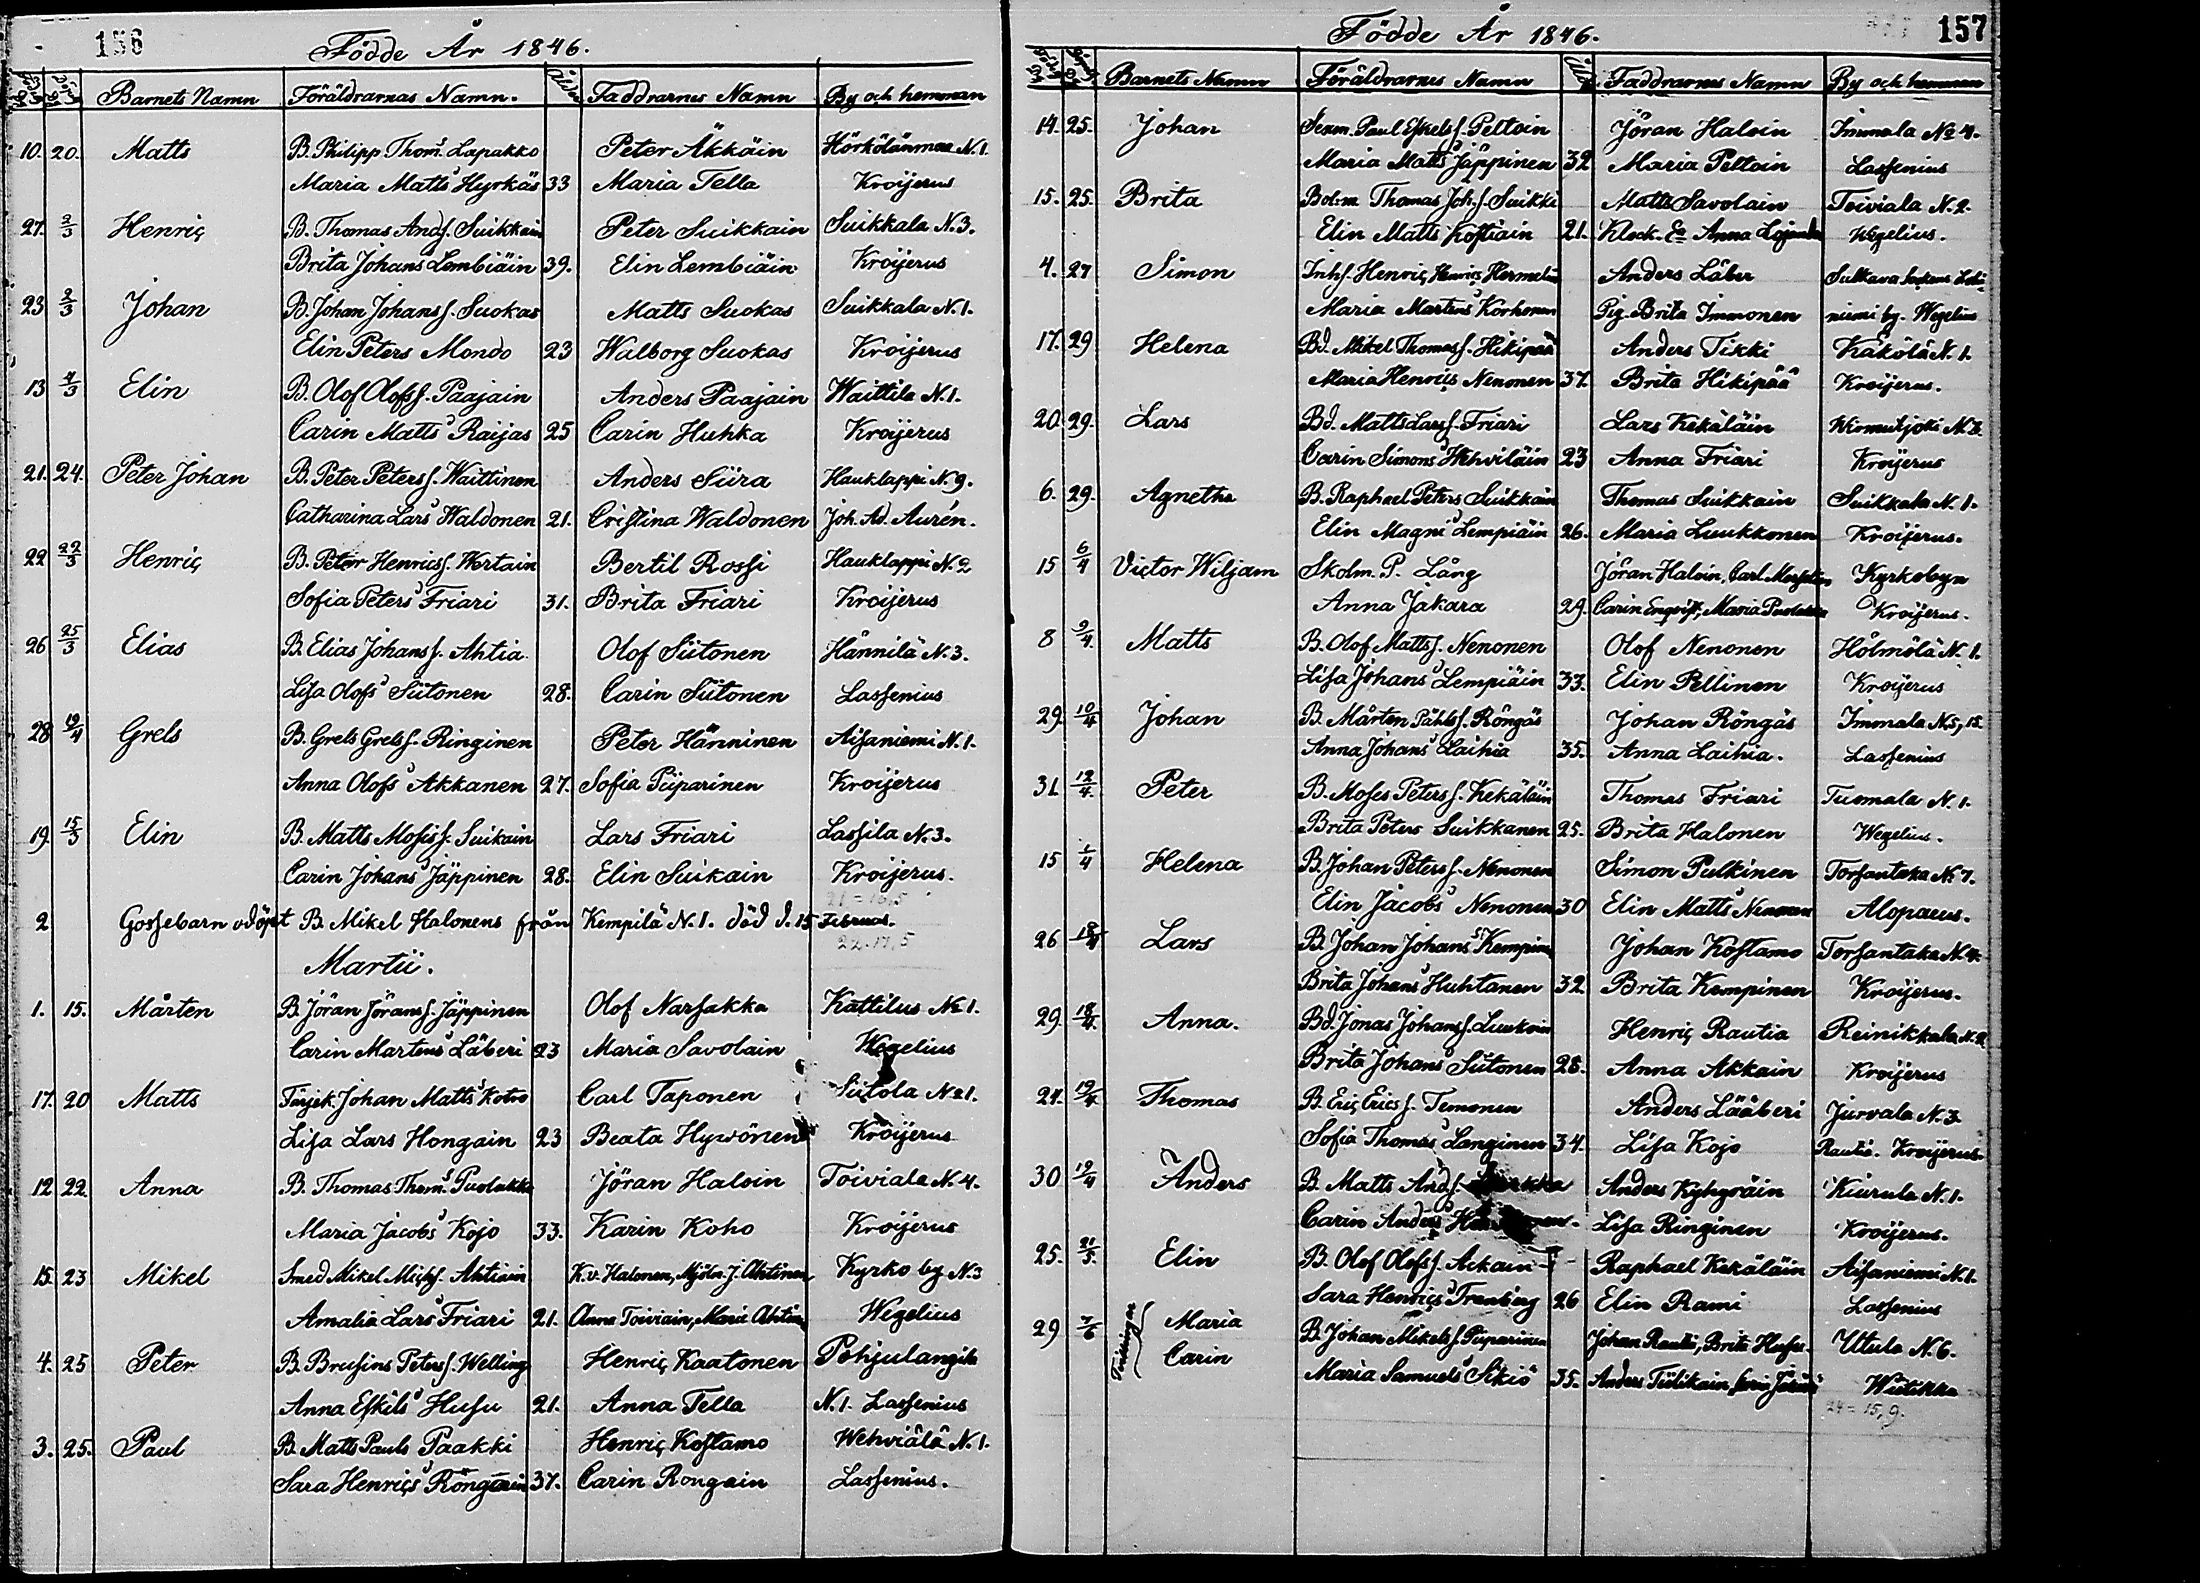 156
Födde År 1846.
Barnets Namn Föräldrarnas Namn. Ålder Faddrarnes Namn By och hemman
10. 20. Matts B. Philipp Thoms. Lapakko Peter Äkkäin Hörkölänmaa N. 1.
Maria Matts Hyrkäs 33 Maria Tella Kroijerus
27. 2/3 Henriç B. Thomas Andss. Suikkain Peter Suikkain Suikkala N. 3.
Brita Johans Lembiäin 39. Elin Lembiäin Kroijerus
23 2/3 Johan B. Johan Johanss. Suokas Matts Suokas Suikkala N. 1.
Elin Peters Mondo 23 Walborg Suokas Kroijerus
13 4/3 Elin B. Olof Olofss. Paajain Anders Paajain Waittila N. 1.
Carin Matts Raijas 25 Carin Huhka Kroijerus
21. 24. Peter Johan B. Peter Peterss. Waittinen Anders Siira Hauklappi N. 9.
Catharina Lars Waldonen 21. Cristina Waldonen Joh. Ad. Aurén.
22 22/3 Henriç B. Peter Henricss. Wertain Bertil Rossi Hauklappi N. 2
Sofia Peters Friari 31. Brita Friari Kroijerus
26 25/3 Elias B. Elias Johanss. Ahtia Olof Siitonen Hännilä N. 3.
Lisa Olofs Siitonen 28. Carin Siitonen Lassenius
28 19/4 Grels B. Grels Grelss. Ringinen Peter Hänninen Aisaniemi N. 1.
Anna Olofs Akkanen 27. Sofia Piiparinen Kroijerus
19. 15/3 Elin B. Matts Mosiss. Suikain Lars Friari Lassila N. 3.
Carin Johans Jäppinen 28. Elin Suikain Kroijerus.
21 = 16,5
2 Gossebarn odöpt B. Mikel Halonens från Kempilä N. 1. död d. 15 Februar.
22. 17,5
Martii.
1. 15. Mårten B. Jöran Jöranss. Jäppinen Olof Narsakka Kattilus No 1.
Carin Martens Läberi 23 Maria Savolain Wegelius
17. 20 Matts Johan Matts Kotro Carl Taponen Siitola No 1.
Lisa Lars Hongain 23 Beata Hyvönen Kroijerus
12 22. Anna B. Thomas Thoms. Puolakka Jöran Haloin Toiviala N. 4.
Maria Jacobs Kojo 33. Karin Koho Kroijerus
15. 23 Mikel Smed Mikel Michss. Ahtiain K.v. Halonen, Mjöln. J. Ahtinen Kyrko by N. 3
Amalia Lars Friari 21. Anna Toiviain, Maria Wegelius
4. 25 Peter B. Brusius Peterss. Welling Henriç Kaatonen Pohjulangila
Anna Eskils Husu 21. Anna Tella N. 1. Lassenius
3. 25. Paul B. Matts Pauls Paakki Henriç Kostamo Wehviälä N. 1.
Sara Henriçs Röngäin 37. Carin Rongain Lassenius.
157
Födde År 1846.
Barnets Namn Föräldrarnes Namn Faddrarnes Namn By och hemman
14. 25. Johan Sexm. Paul Eskelss. Peltoin Jöran Haloin Immala No 4.
Maria Matts Jäppinen 32 Maria Peltoin Lassenius
15. 25. Brita Thomas Joh. s. Suikki Matts Savolain Toiviala N. 2.
Elin Matts Kostiain 21. Klock. Ea Anna Wegelius.
4. 27 Simon Inhs. Henriç Henrics Anders Läber Sulkava
Maria Martens Korhonen Pig. Brita Immonen niemi by. Wegelius
17. 29 Helena Bd. Mikel Thomass. Hikipää Anders Tikki Käkölä N. 1.
Maria Henriçs Nenonen 37. Brita Hikipää Kroijerus.
20 29. Lars Bd. Matts Larss. Friari Lars Kekäläin N. 3.
Carin Simons Wehviläin 23 Anna Friari Kroijerus
6. 29. Agnetha B. Raphael Peters Suikkain Thomas Suikkain Suikkala N. 1.
Elin Magni Lempiäin 26. Maria Luukkonen Kroijerus.
15 6/4 Victor Wiljam Skolm. P. Lång Jöran Haloin, Carl Kyrkobyn
Anna Jakara 29. Carin Enqvist, Maria Kroijerus.
8 9/4 Matts B. Olof Mattss. Nenonen Olof Nenonen Holmölä N. 1.
Lisa Johans Lempiäin 33. Elin Pellinen Kroijerus
29. 10/4 Johan B. Mårten Påhlss. Röngäs Johan Röngäs Immala N. 5, 15.
Anna Johans Laihia 35. Anna Laihia. Lassenius
31 12/4 Peter B. Moses Peterss. Kekäläin Thomas Friari Tuomala N. 1.
Brita Peters Suikkanen 25. Brita Halonen Wegelius.
15 1/4 Helena B. Johan Peterss. Nenonen Simon Pulkinen Torsantaka N. 7.
Elin Jacobs Nenonen 30 Elin Matts Nenonen Alopaeus.
26 18/4 Lars B. Johan Johans Kempinen Johan Kostamo Torsantaka N. 4.
Brita Johans Huhtanen 32 Brita Kempinen Kroijerus.
29. 18/4 Anna. Bd. Jonas Johanss. Luukoin Henriç Rautia Reinikkala N. 2
Brita Johans Siitonen 28. Anna Akkain Kroijerus
24. 19/4 Thomas B. Eriç Erics s. Temonen Anders Lääberi Jurvala N. 3
Sofia Thomas Langinen 34. Lisa Kojo Rautio. Kroijerus.
30 19/4 Anders B. Matts Ands. Anders Kyhyräin Kiurula N. 1.
Carin Anders Lisa Ringinen Kroijerus.
25. 21/5. Elin B. Olof Olofss. Ackain Raphael Kekäläin Aisaniemi N. 1.
Sara Henriçs Franberg 26 Elin Rami Lassenius
29 7/6 Tvillingar Maria B. Johan Mikelss. Piiparinen Johan Rautio, Brita Husu. Utula N. 6.
Carin Maria Samuels Sikiö 35. Anders Tiilikain, Wiitikka
24 = 15, 9.